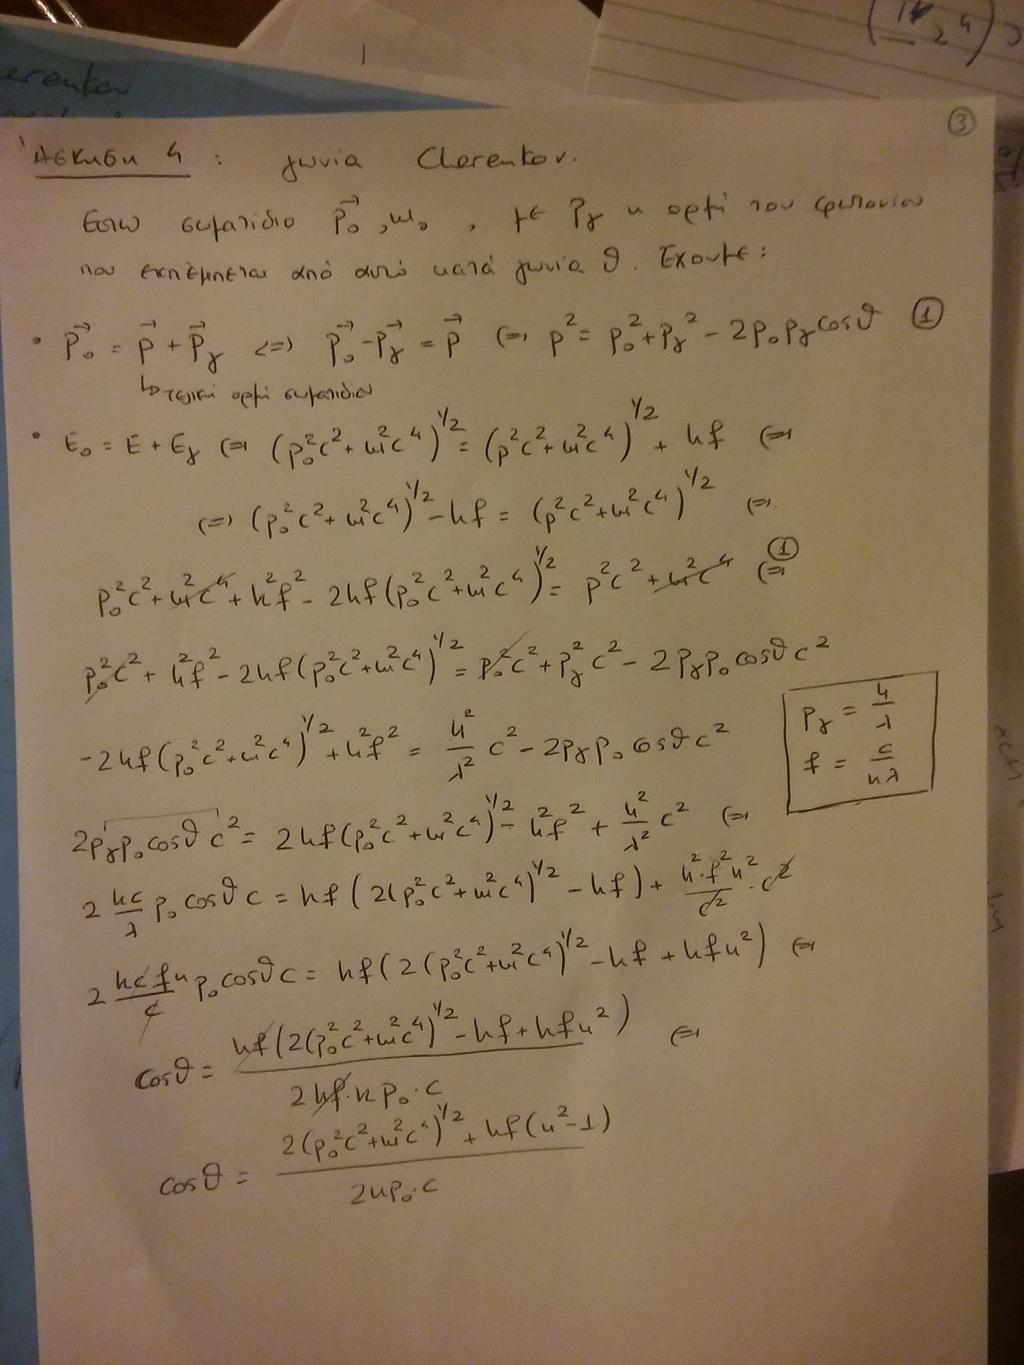 erenkov
③
Άσκηση 4 : γωνία Cherenkov.
Έστω σωματίδιο p⃗₀, m₀, με p_γ η ορμή του φωτονίου
που εκπέμπεται από αυτό κατά γωνία θ. Έχουμε:
• p⃗₀ = p⃗ + p⃗_γ <=> p⃗₀ - p⃗_γ = p⃗ <=> p² = p₀² + p_γ² - 2p₀p_γcosθ ①
↳ τελική ορμή σωματιδίου
• E₀ = E + E_γ <=> (p₀²c² + m²c⁴)^1/2 = (p²c² + m²c⁴)^1/2 + hf <=>
<=> (p₀²c² + m²c⁴)^1/2 - hf = (p²c² + m²c⁴)^1/2 <=>
p₀²c² + m²c⁴ + h²f² - 2hf(p₀²c² + m²c⁴)^1/2 = p²c² + m²c⁴ <=> ①
p₀²c² + h²f² - 2hf(p₀²c² + m²c⁴)^1/2 = p₀²c² + p_γ²c² - 2p_γp₀cosθc²
-2hf(p₀²c² + m²c⁴)^1/2 + h²f² = h²/λ² c² - 2p_γp₀cosθc²
p_γ = h/λ
f = c/nλ
2p_γp₀cosθc² = 2hf(p₀²c² + m²c⁴)^1/2 - h²f² + h²/λ² c² <=>
2 hc/λ p₀cosθc = hf(2(p₀²c² + m²c⁴)^1/2 - hf) + h²·f²n²/c² · c²
2 hcfn/c p₀cosθc = hf(2(p₀²c² + m²c⁴)^1/2 - hf + hfn²) <=>
cosθ = hf(2(p₀²c² + m²c⁴)^1/2 - hf + hfn²) / 2hf·np₀·c <=>
cosθ = 2(p₀²c² + m²c⁴)^1/2 + hf(n²-1) / 2np₀·c